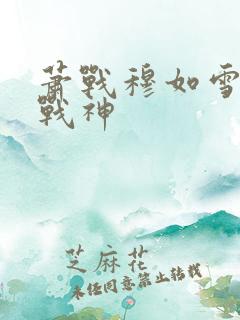 萧戰穆如雪
戰神
芝麻花
未经同意禁止转载